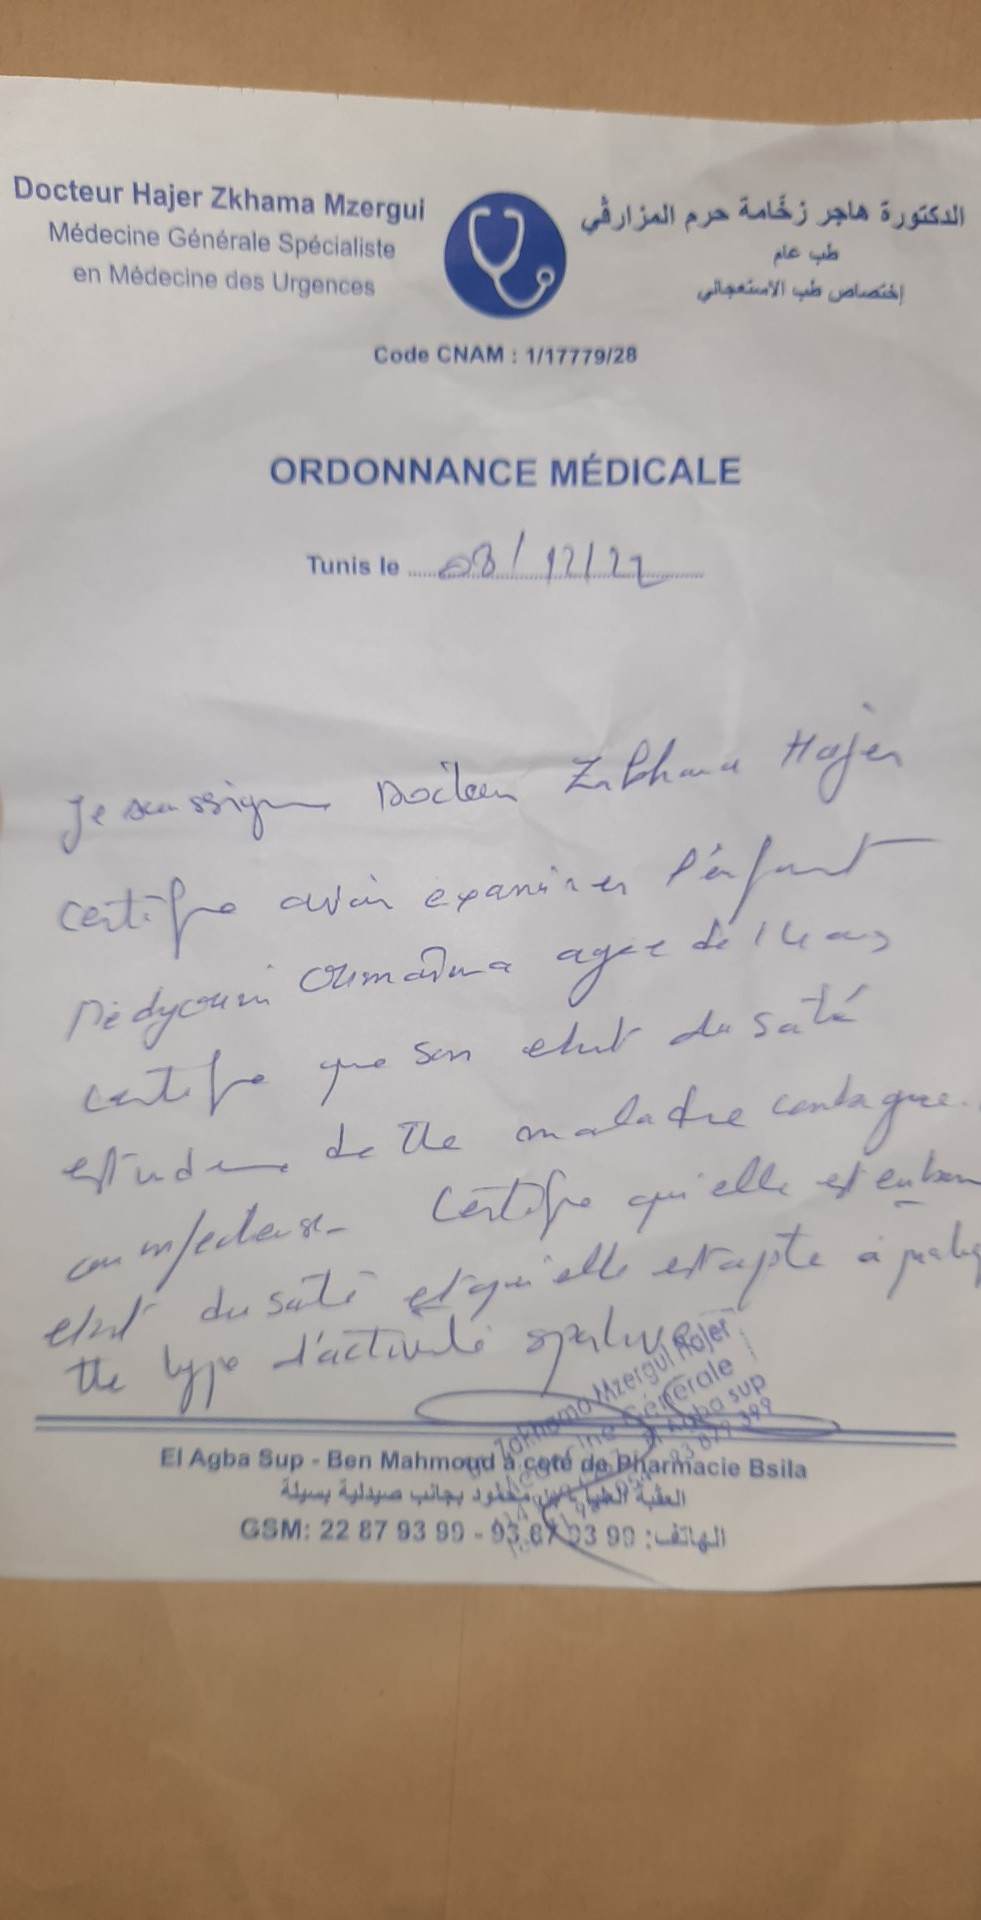 Docteur Hajer Zkhama Mzergui
Médecine Générale Spécialiste
en Médecine des Urgences
الدكتورة هاجر زخّامة حرم المزارڤي
طب عام
إختصاص طب الاستعجالي
Code CNAM : 1/17779/28
ORDONNANCE MÉDICALE
Tunis le 08/12/22
Je soussigne Docteur Zakhama Hajer
certifie avoir examiner l'enfant
Oumaïma agee de 14 ans
certifie que son etat du saté
est indemne de tte maladie contagieuse
ou infectieuse. Certifie qu'elle est en bon
etat du saté et qu'elle est apte à pratiq
tte type d'activité sportive
Mzergui Hajer
Générale
El Agba sup
El Agba Sup - Ben Mahmoud à coté de Pharmacie Bsila
العقبة العليا بن محمود بجانب صيدلية بسيلة
GSM: 22 87 93 99 - 93 87 93 99 :الهاتف